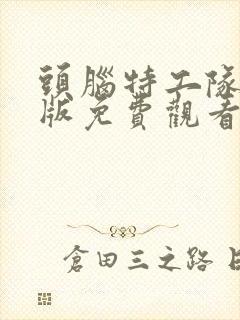 頭腦特工隊
版免費觀看
倉田三之路